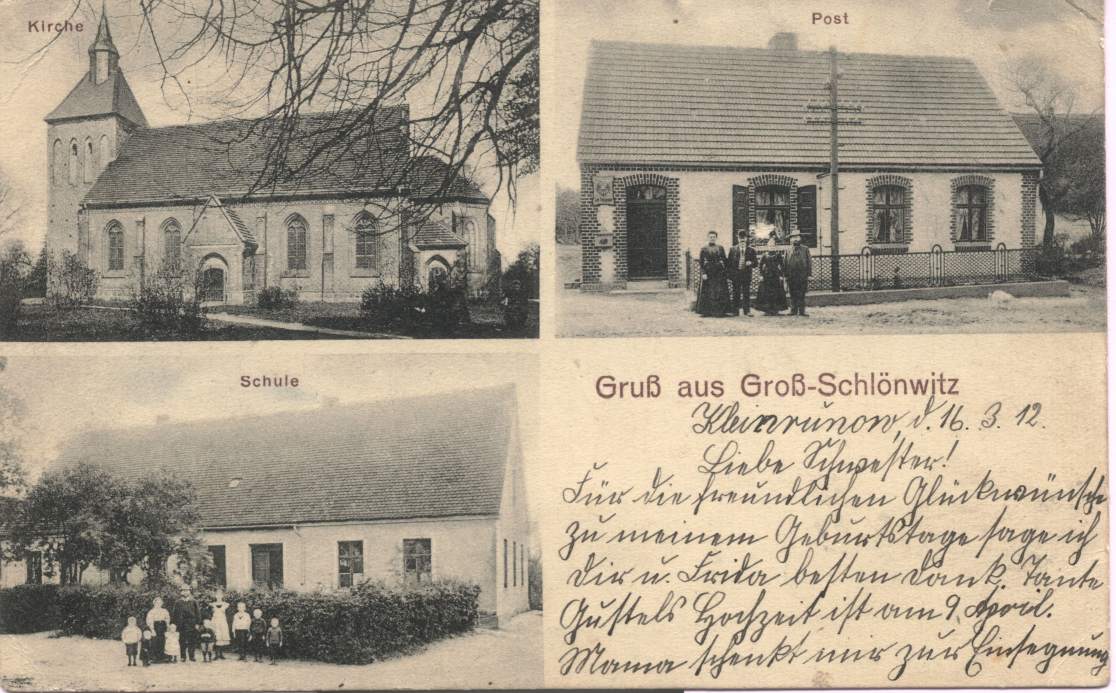 Kirche
Post
Schule
Gruß aus Groß-Schlönwitz
Kleinrunow, d. 16. 3. 12.
Liebe Schwester!
Für die freundlichen Glückwünsche
zu meinem Geburtstage sage ich
dir u. Frida besten Dank. Tante
Gustels Hochzeit ist am 9. April.
Mama schenkt mir zur Einsegnung